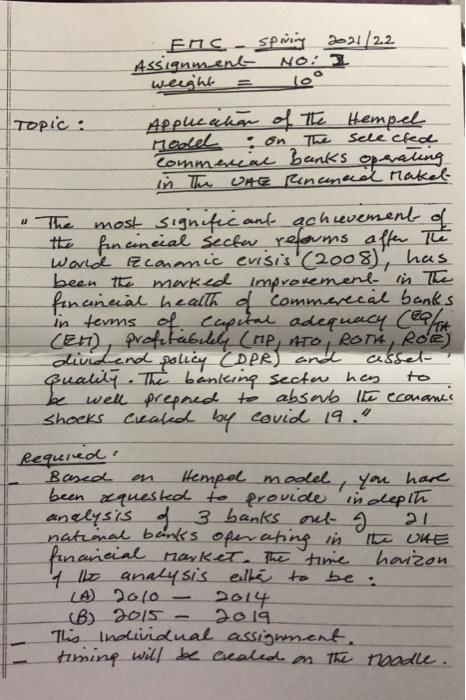 FMC - spring 2021/22
Assignment NO: 2
weight = 10°
TOPIC : Application of The Hempel
Model : on The selected
commercial banks operating
in The UAE Financial Market
" The most significant achievement of
the financial sector reforms after The
World Economic crisis (2008), has
been the marked improvement in The
financial health of commercial banks
in terms of capital adequacy (EQ/TA
(EM), profitability (MP, ATO, ROTA, ROE)
dividend policy (DPR) and asset-
Quality. The banking sector has to
be well prepared to absorb the economic
shocks created by covid 19."
Required :
- Based on Hempel model, you have
been requested to provide indepth
analysis of 3 banks out of 21
national banks operating in the UAE
financial market. The time horizon
of the analysis either to be :
(A) 2010 - 2014
(B) 2015 - 2019
- This Individual assignment.
- timing will be created on the Moodle.